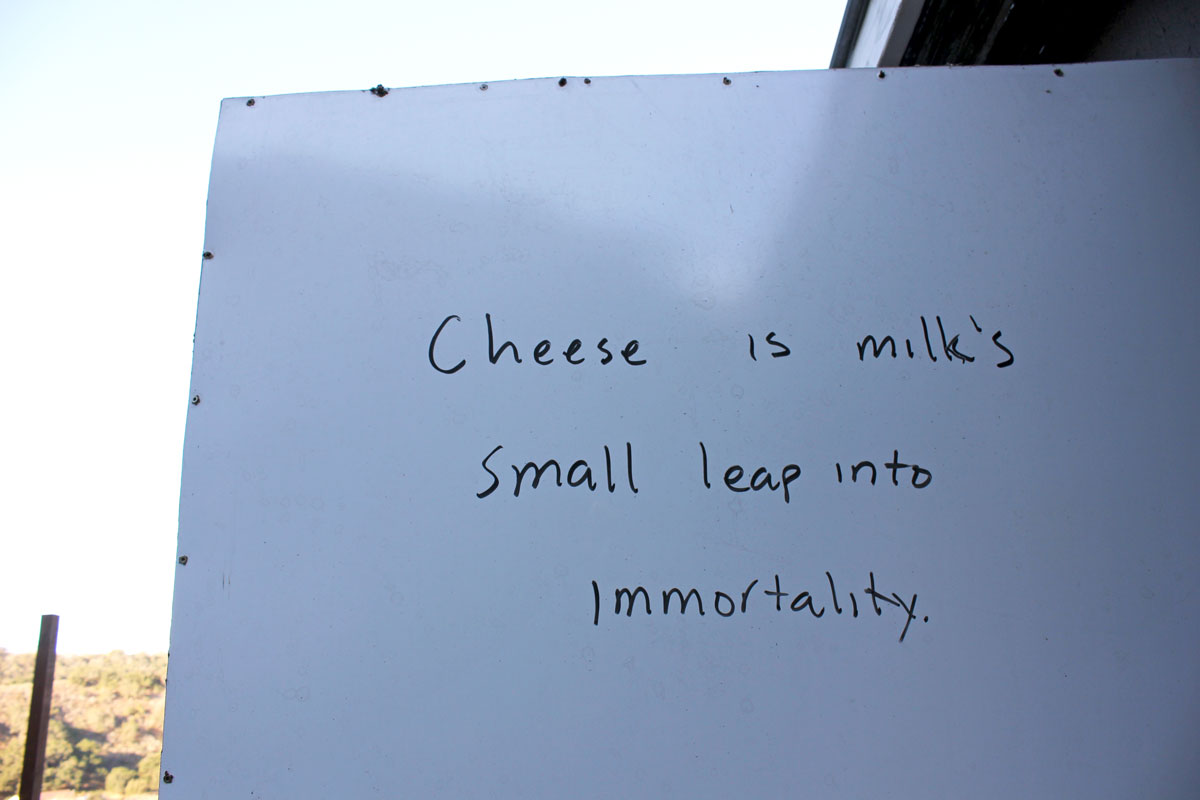 Cheese is milk's
Small leap into
Immortality.